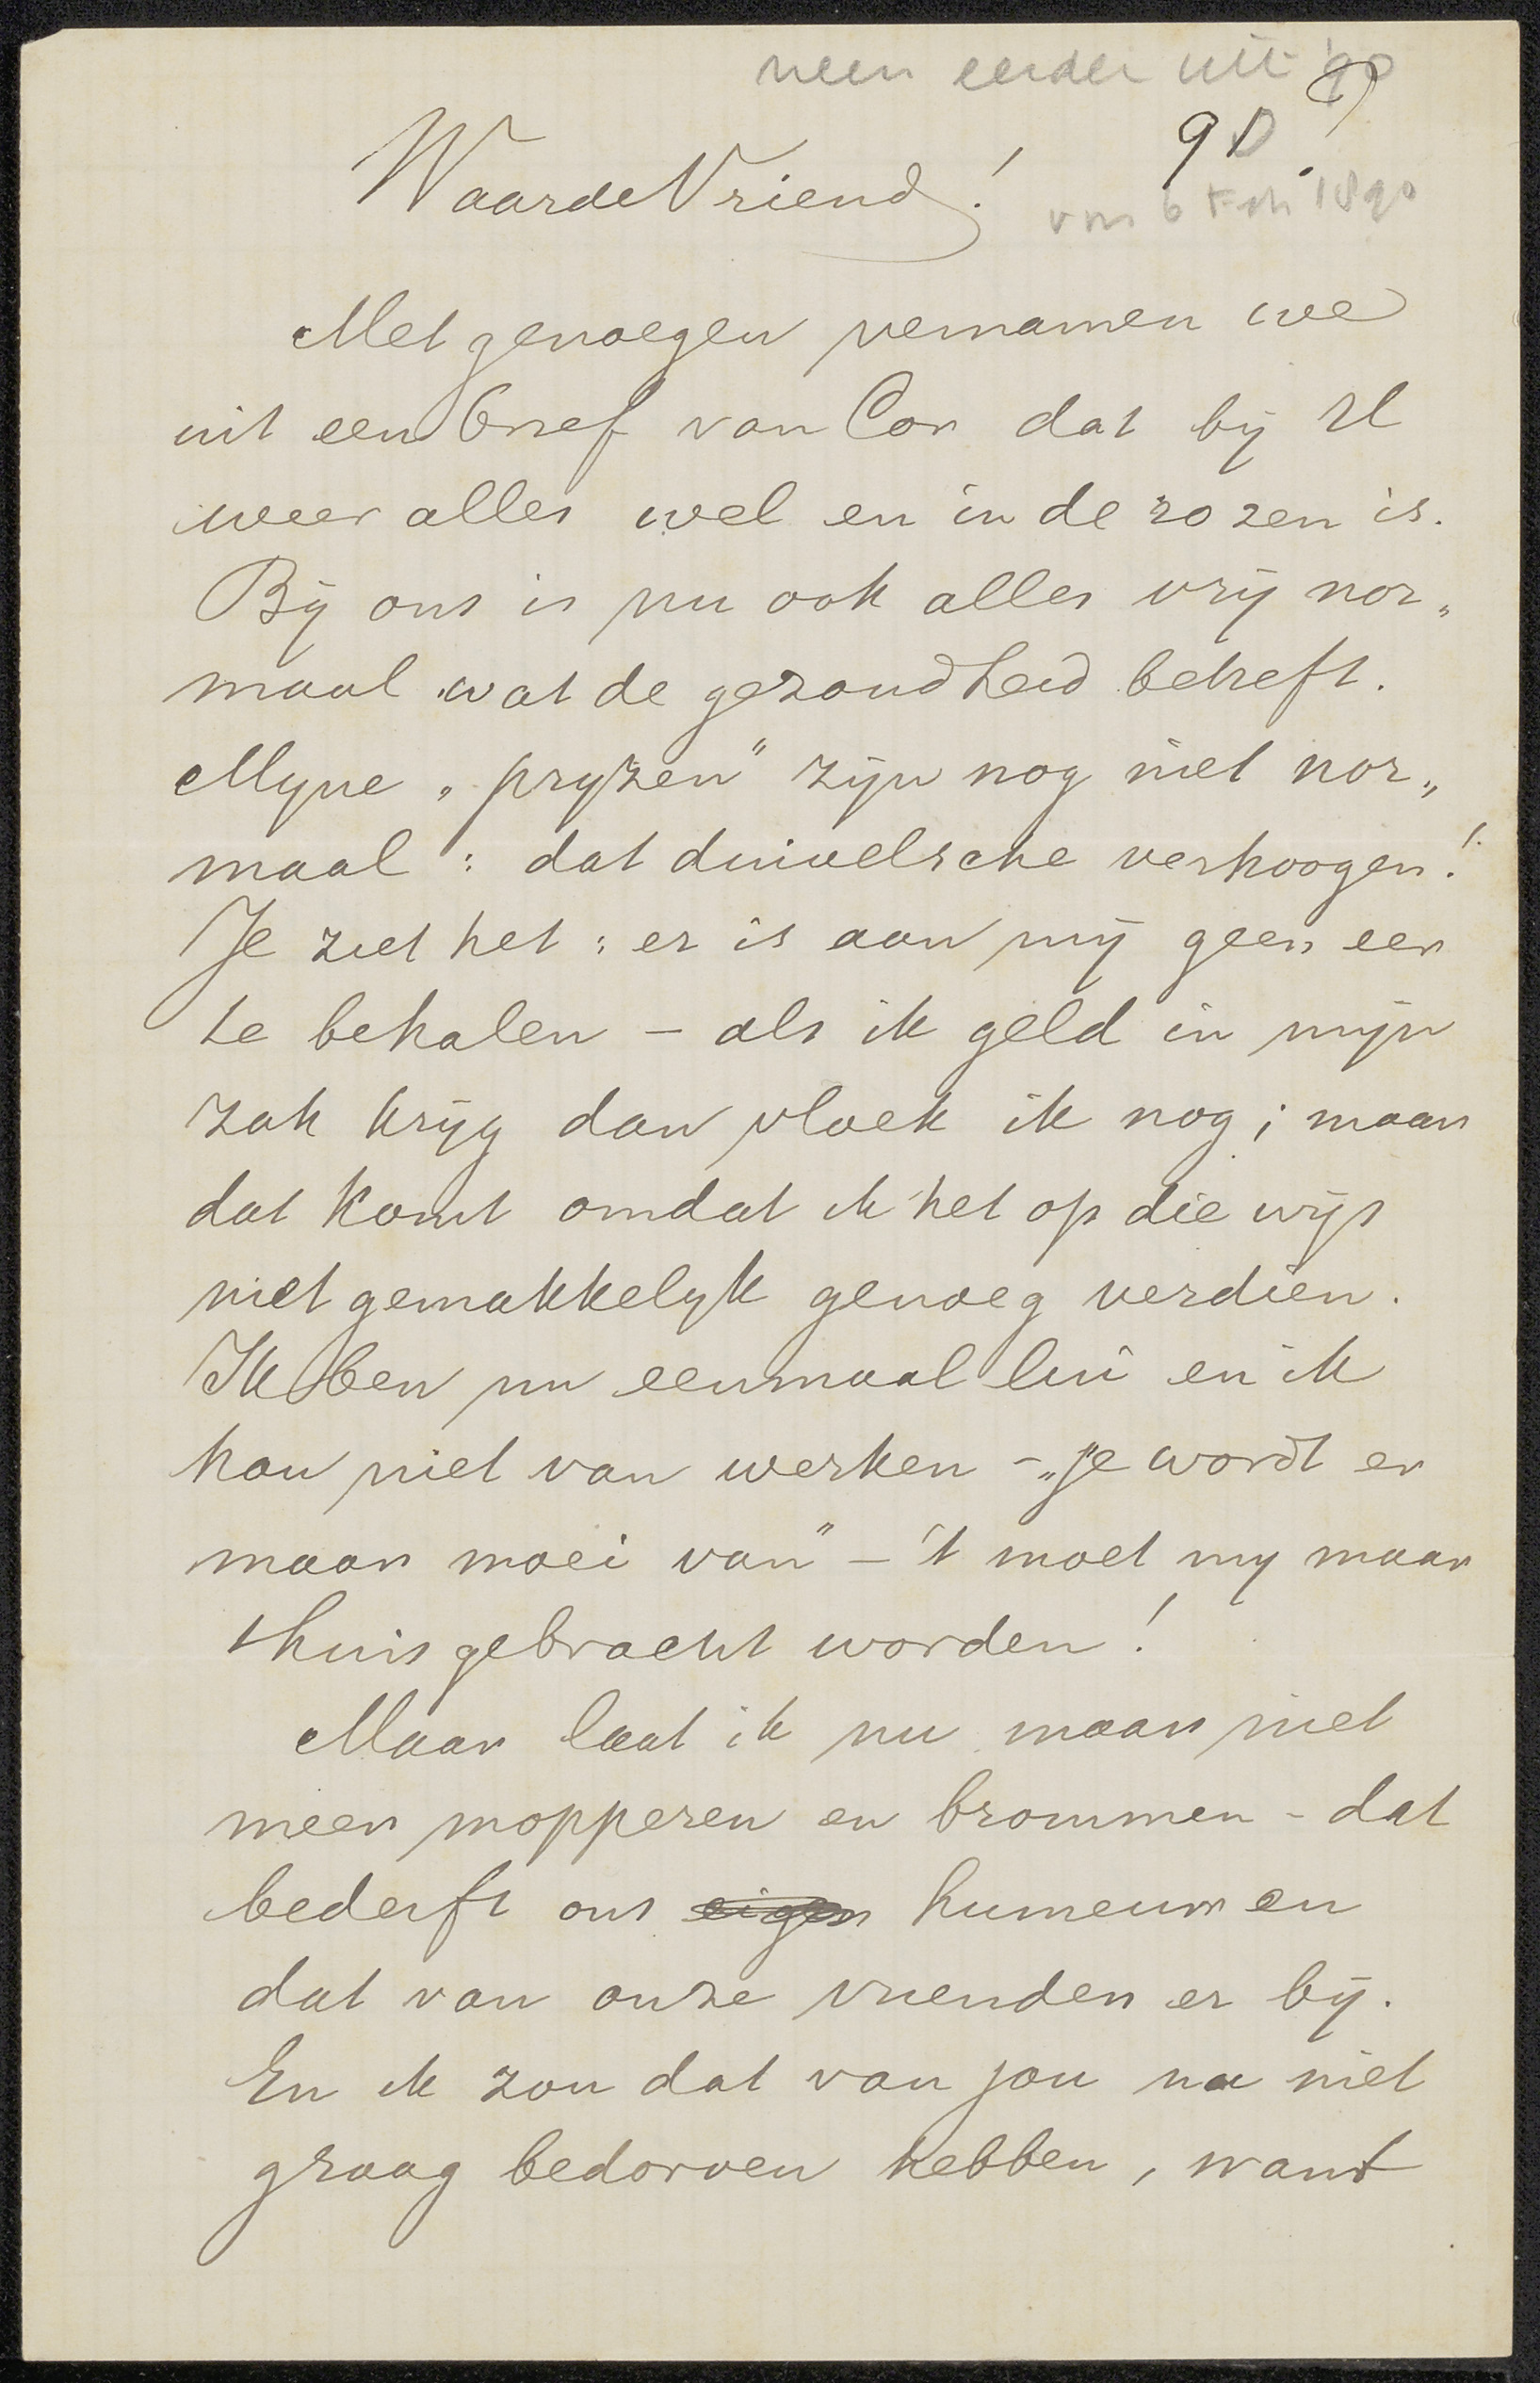 neen eerder uit '90
90.
Waarde Vriend!
v m 6 Feb 1890
Met genoegen vernamen we
uit een brief van Cor dat bij U
weer alles wel en in de rozen is.
Bij ons is nu ook alles vrij nor„
maal wat de gezondheid betreft.
Myne „pryzen” zijn nog niet nor„
maal: dat duivelsche verhoogen!
Je ziet het: er is aan mij geen eer
te behalen – als ik geld in mijn
zak krijg dan vloek ik nog; maar
dat komt omdat ik het op die wijs
niet gemakkelyk genoeg verdien.
Ik ben nu eenmaal lui en ik
hou niet van werken – „je wordt er
maar moei van” – 't moet my maar
thuis gebracht worden!
Maar laat ik nu maar niet
meer mopperen en brommen – dat
bederft ons eigen humeur en
dat van onze vrienden er bij.
En ik zou dat van jou nu niet
graag bedorven hebben, want